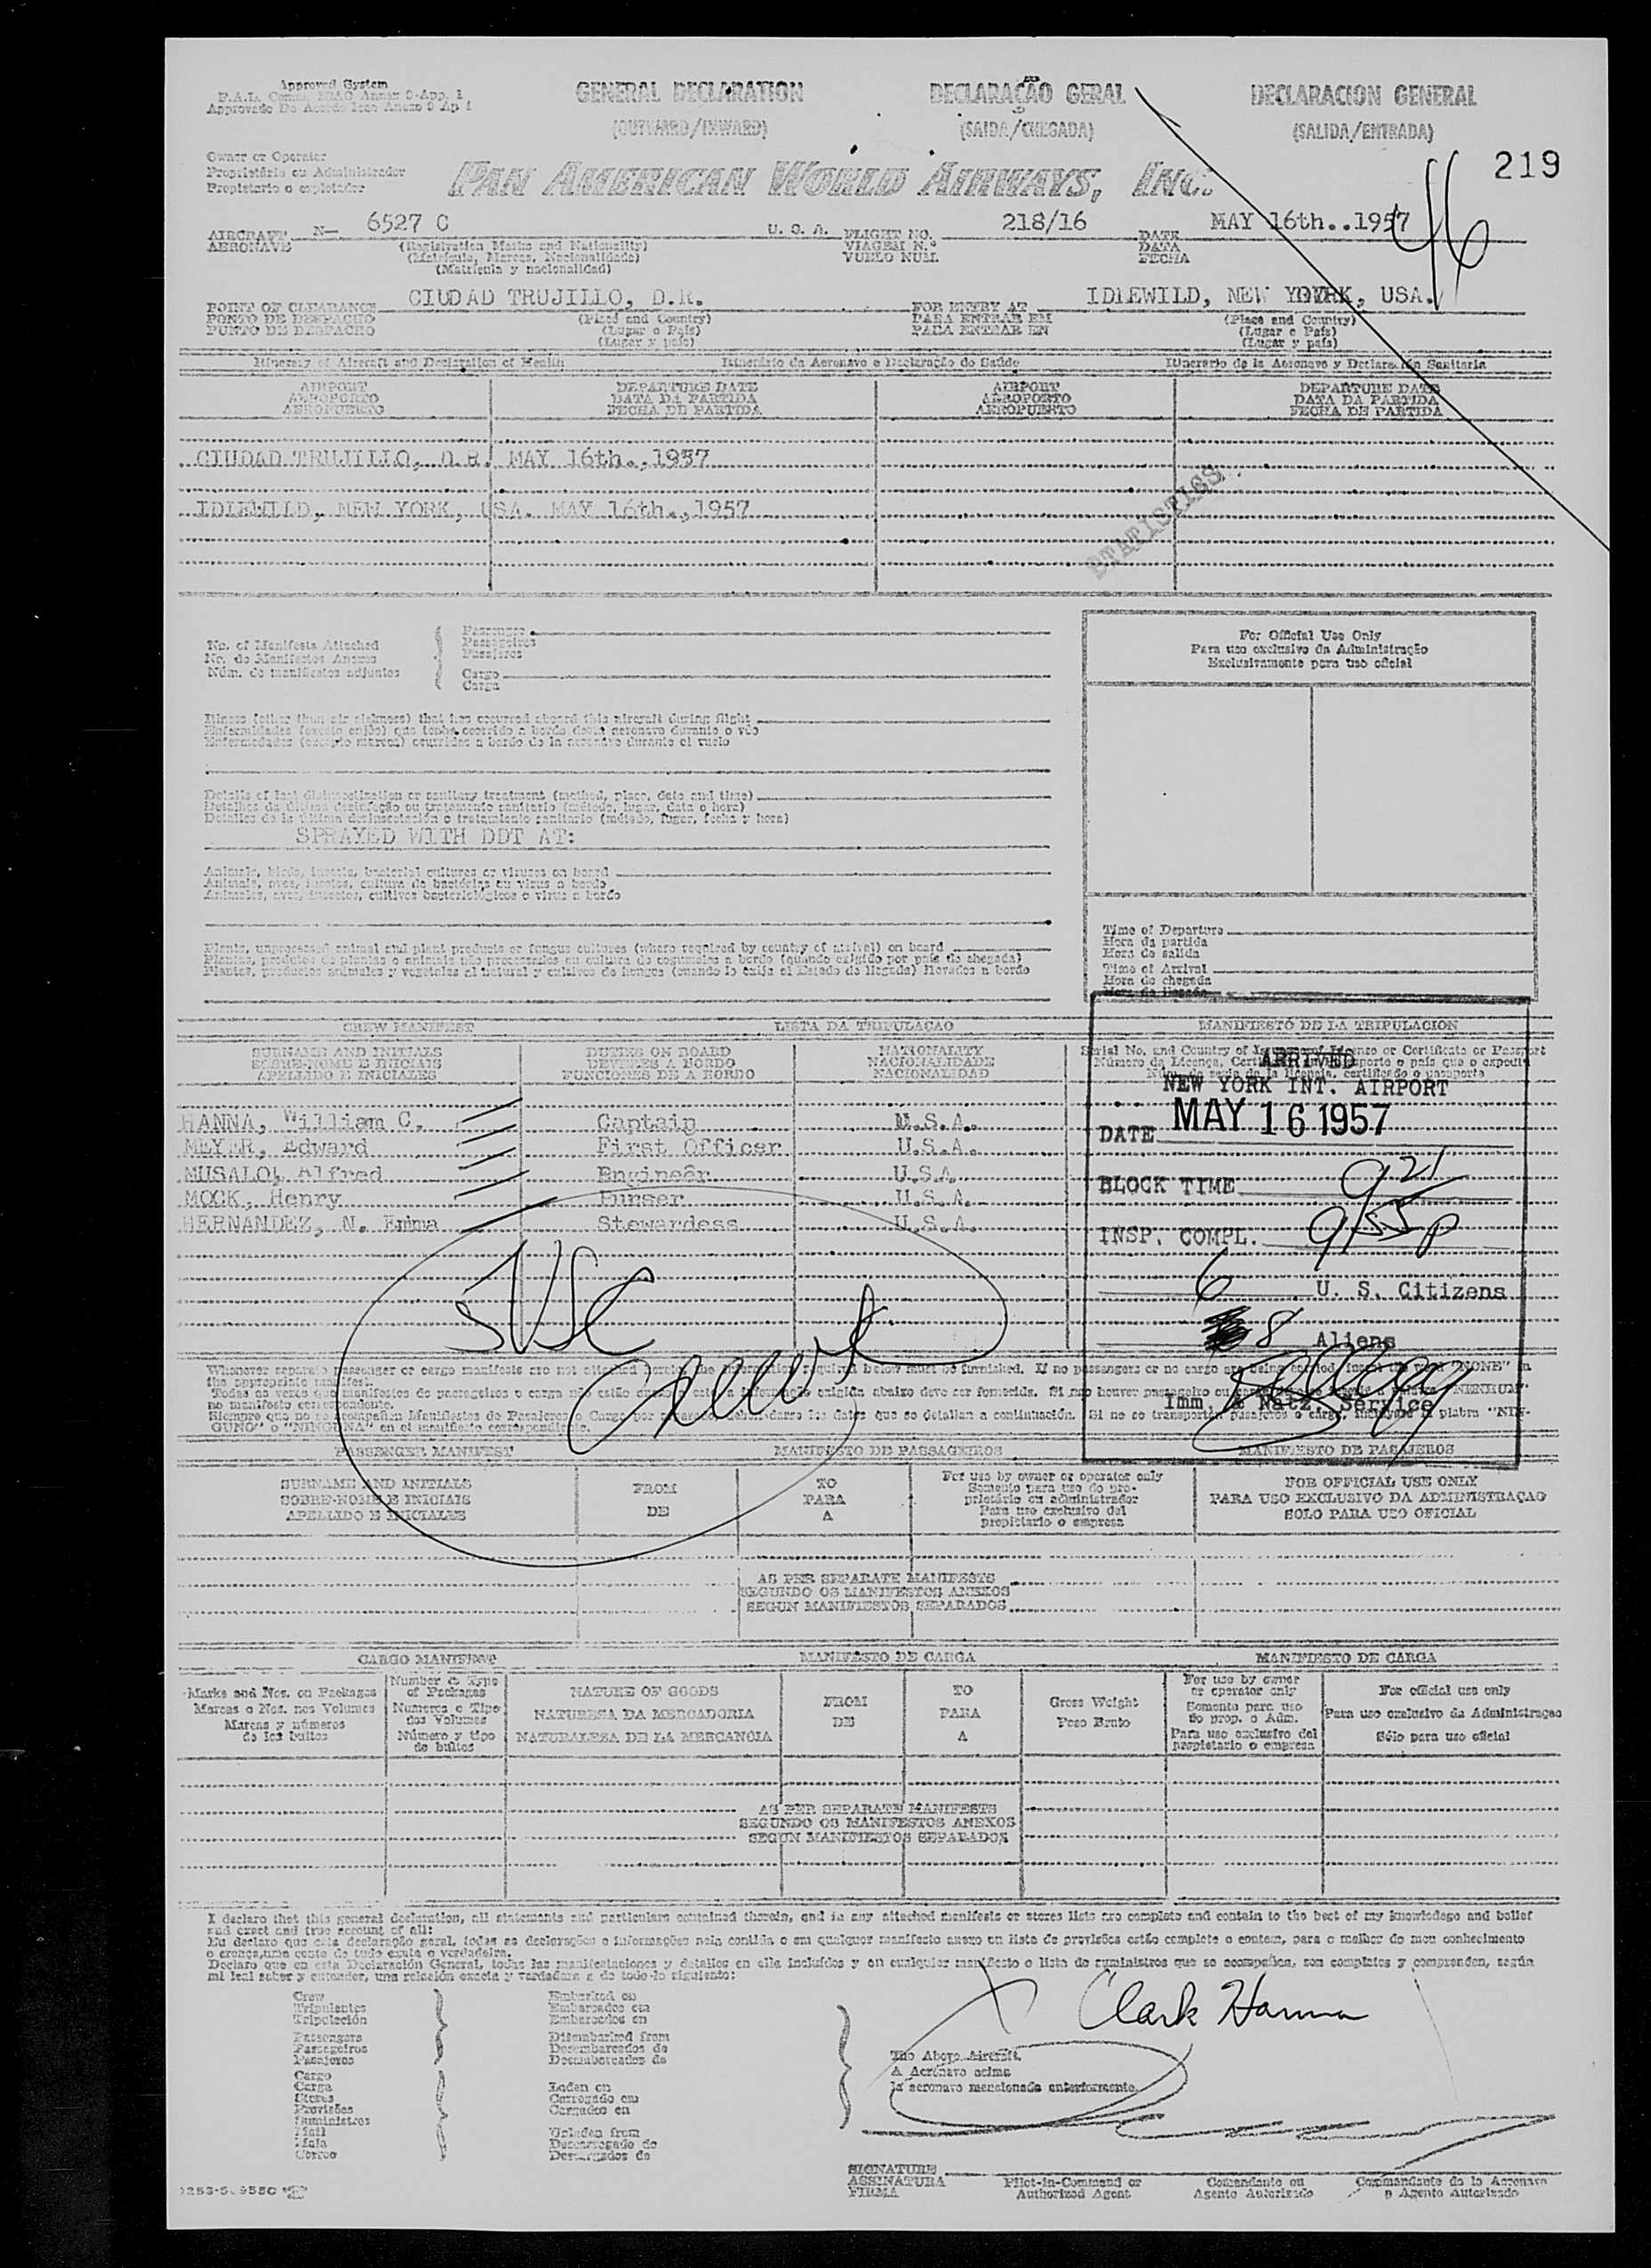 Approved System
GENERAL DECLARATION DECLARAÇÃO GERAL DECLARACION GENERAL
(OUTWARD/INWARD) (SAIDA/CHEGADA) (SALIDA/ENTRADA)
Owner or Operator
Proprietário ou Administrador
Propietario o explotador
PAN AMERICAN WORLD AIRWAYS, INC.
219
46
AIRCRAFT N- 6527 C U. S. A. FLIGHT NO. 218/16 DATE MAY 16th..1957
AERONAVE (Registration Marks and Nationality) VIAGEM N.º DATA
(Matrícula, Marcas, Nacionalidade) VUELO NUM. FECHA
(Matrícula y nacionalidad)
POINT OF CLEARANCE CIUDAD TRUJILLO, D.R. FOR ENTRY AT IDLEWILD, NEW YORK, USA.
PONTO DE DESPACHO (Place and Country) PARA ENTRAR EM (Place and Country)
PUNTO DE DESPACHO (Lugar e País) PARA ENTRAR EN (Lugar e País)
(Lugar y país) (Lugar y país)
Itinerary of Aircraft and Declaration of Health Itinerário da Aeronave e Declaração de Saúde Itinerario de la Aeronave y Declaración Sanitaria
AIRPORT DEPARTURE DATE AIRPORT DEPARTURE DATE
AEROPORTO DATA DA PARTIDA AEROPORTO DATA DA PARTIDA
AEROPUERTO FECHA DE PARTIDA AEROPUERTO FECHA DE PARTIDA
CIUDAD TRUJILLO, D.R. MAY 16th.,1957
IDLEWILD, NEW YORK, USA. MAY 16th.,1957
STATISTICS
No. of Manifests Attached Passenger
No. de Manifestos Anexos Passageiros
Núm. de manifiestos adjuntos Pasajeros
Cargo
Carga
For Official Use Only
Para uso exclusivo da Administração
Exclusivamente para uso oficial
Illness (other than air sickness) that has occurred aboard this aircraft during flight
Enfermidades (exceto enjôo) que tenha ocorrido a bordo desta aeronave durante o vôo
Enfermedades (excepto mareos) ocurridas a bordo de la aeronave durante el vuelo
Details of last disinsectization or sanitary treatment (method, place, date and time)
Detalhes da última desinfeção ou tratamento sanitario (método, lugar, data e hora)
Detalles de la última desinsectación o tratamiento sanitario (método, lugar, fecha y hora)
SPRAYED WITH DDT AT:
Animals, birds, insects, bacterial cultures or viruses on board
Animais, aves, insetos, cultura de bactérias ou virus a bordo
Animales, aves, insectos, cultivos bacteriológicos o virus a bordo
Plants, unprocessed animal and plant products or fungus cultures (where required by country of arrival) on board
Plantas, produtos de plantas e animais não processados ou cultura de cogumelos a bordo (quando exigido por país de chegada)
Plantas, productos animales y vegetales al natural y cultivos de hongos (cuando lo exija el Estado de llegada) llevados a bordo
Time of Departure
Hora da partida
Hora de salida
Time of Arrival
Hora de chegada
Hora de llegada
CREW MANIFEST LISTA DA TRIPULAÇAO MANIFIESTO DE LA TRIPULACION
SURNAME AND INITIALS DUTIES ON BOARD NATIONALITY
SOBRE-NOME E INICIAIS DEVERES A BORDO NACIONALIDADE
APELLIDO E INICIALES FUNCIONES DE A BORDO NACIONALIDAD
HANNA, William C. Captain U.S.A.
MEYER, Edward First Officer U.S.A.
MUSALO, Alfred Engineer U.S.A.
MOCK, Henry Purser U.S.A.
HERNANDEZ, N. Emma Stewardess U.S.A.
ARRIVED
NEW YORK INT. AIRPORT
DATE MAY 16 1957
BLOCK TIME 9 21
INSP. COMPL. 9 55 p
6 U. S. Citizens
8 Aliens
Imm. & Natz. Service
5 USC
Whenever separate passenger or cargo manifests are not attached hereto the information required below must be furnished. If no passengers or no cargo are being carried, insert the word "NONE" in
the appropriate manifest.
PASSENGER MANIFEST MANIFESTO DE PASSAGEIROS MANIFIESTO DE PASAJEROS
SURNAME AND INITIALS FROM TO For use by owner or operator only FOR OFFICIAL USE ONLY
SOBRE-NOME E INICIAIS DE PARA Somente para uso do proprietário ou administrador PARA USO EXCLUSIVO DA ADMINISTRAÇAO
APELLIDO E INICIALES A Para uso exclusivo del propietario o empresa SOLO PARA USO OFICIAL
AS PER SEPARATE MANIFESTS
SEGUNDO OS MANIFESTOS ANEXOS
SEGUN MANIFIESTOS SEPARADOS
CARGO MANIFEST MANIFESTO DE CARGA MANIFIESTO DE CARGA
Marks and Nos. on Packages Number & Type of Packages NATURE OF GOODS FROM TO Gross Weight For use by owner or operator only For official use only
Marcas e Nos. nos Volumes Numeros e Tipo dos Volumes NATURESA DA MERCADORIA DE PARA Peso Bruto Somente para uso do prop. o Adm. Para uso exclusivo da Administraçao
Marcas y números de los bultos Número y tipo de bultos NATURALEZA DE LA MERCANCIA A Para uso exclusivo del propietario o empresa Sólo para uso oficial
AS PER SEPARATE MANIFESTS
SEGUNDO OS MANIFESTOS ANEXOS
SEGUN MANIFIESTOS SEPARADOS
I declare that this general declaration, all statements and particulars contained therein, and in any attached manifests or stores lists are complete and contain to the best of my knowledege and belief
and exact and true account of all:
Eu declaro que esta declaração geral, todas as declarações e informações nela contida e em qualquer manifesto anexo ou lista de provisões estão complete e contem, para o melhor do meu conhecimento
e crença, uma conta de tudo exata e verdadeira.
Declaro que en esta Declaración General, todas las manifestaciones y detalles en ella incluídos y en cualquier manifiesto o lista de suministros que se acompañan, son completos y comprenden, según
mi leal saber y entender, una relación exacta y verdadera a de todo lo siguiente:
Crew Embarked on
Tripulantes Embarcados em
Tripulación Embarcados en
Passengers Disembarked from
Passageiros Desembarcados de
Pasajeros Desembarcados de
Cargo
Carga Laden on
Stores Carregado em
Provisões Cargados en
Suministros
Mail Unladen from
Mala Descarregado de
Correo Descargados de
X Clark Hanna
The Above Aircraft
A Aeronave acima
la aeronave mencionada anteriormente
SIGNATURE
ASSINATURA Pilot-in-Command or Comandante ou Commandante de la Aeronave
FIRMA Authorized Agent Agente Autorizado o Agente Autorizado